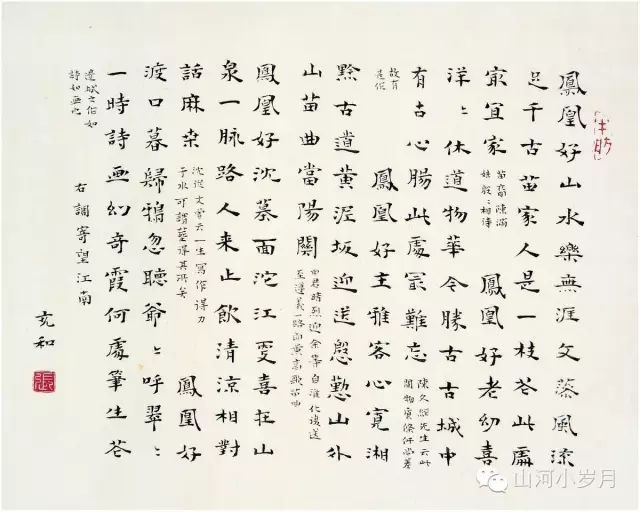 鳳凰好山水樂無涯文藻風流
足千古苗家人是一枝花此處
最宜家
苗裔陳滿
姑殷〻相待
鳳凰好老幼喜
洋〻休道物華今勝古古城中
有古心腸此處最難忘
陳久經先生云此
間物質條件尚差
故有
是句
鳳凰好主雅客心寬湘
黔古道黃泥坂迎送慇懃山外
山苗曲當陽關
田君時烈迎余等自淮化復送
至遵義一路面高歌苗曲
鳳凰好沈墓面沱江更喜在山
泉一脉路人来止飲清涼相對
話麻桑
沈從文嘗云一生寫作得力
于水可謂藝得其所矣
鳳凰好
渡口暮歸鴉忽聽爺〻呼翠〻
一時詩画幻奇霞何處筆生花
邊城之作如
詩如画也
右調寄望江南
充和
張
山河小岁月